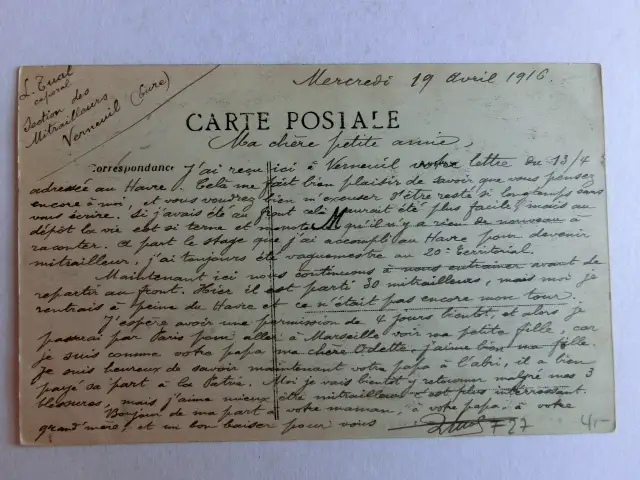 L. Tual
caporal
Section des
Mitrailleurs
Verneuil (Eure)
Mercredi 19 avril 1916.
CARTE POSTALE
Ma chère petite amie,
Correspondance J'ai reçu ici à Verneuil votre lettre du 13/4
adressée au Havre. Cela me fait bien plaisir de savoir que vous pensez
encore à moi, et vous voudrez bien m'excuser d'être resté si longtemps sans
vous écrire. Si j'avais été au front cela aurait été plus facile, mais au
dépôt la vie est si terne et monotone qu'il n'y a rien de nouveau à
raconter. A part le stage que j'ai accompli au Havre pour devenir
mitrailleur, j'ai toujours été vaguemestre au 20e territorial.
Maintenant ici nous continuons à nous entraîner avant de
repartir au front. Hier il est parti 30 mitrailleurs, mais moi je
rentrais à peine du Havre et ce n'était pas encore mon tour.
J'espère avoir une permission de 4 jours bientôt et alors je
passerai par Paris pour aller à Marseille voir ma petite fille, car
je suis comme votre papa ma chère Odette, j'aime bien ma fille.
Je suis heureux de savoir maintenant votre papa à l'abri, il a bien
payé sa part à la Patrie. Moi je vais bientôt y retourner malgré mes 3
blessures, mais j'aime mieux être mitrailleur c'est plus intéressant.
Bonjour de ma part à votre maman, à votre papa, à votre
grand'mère, et un bon baiser pour vous
F 27
4,-